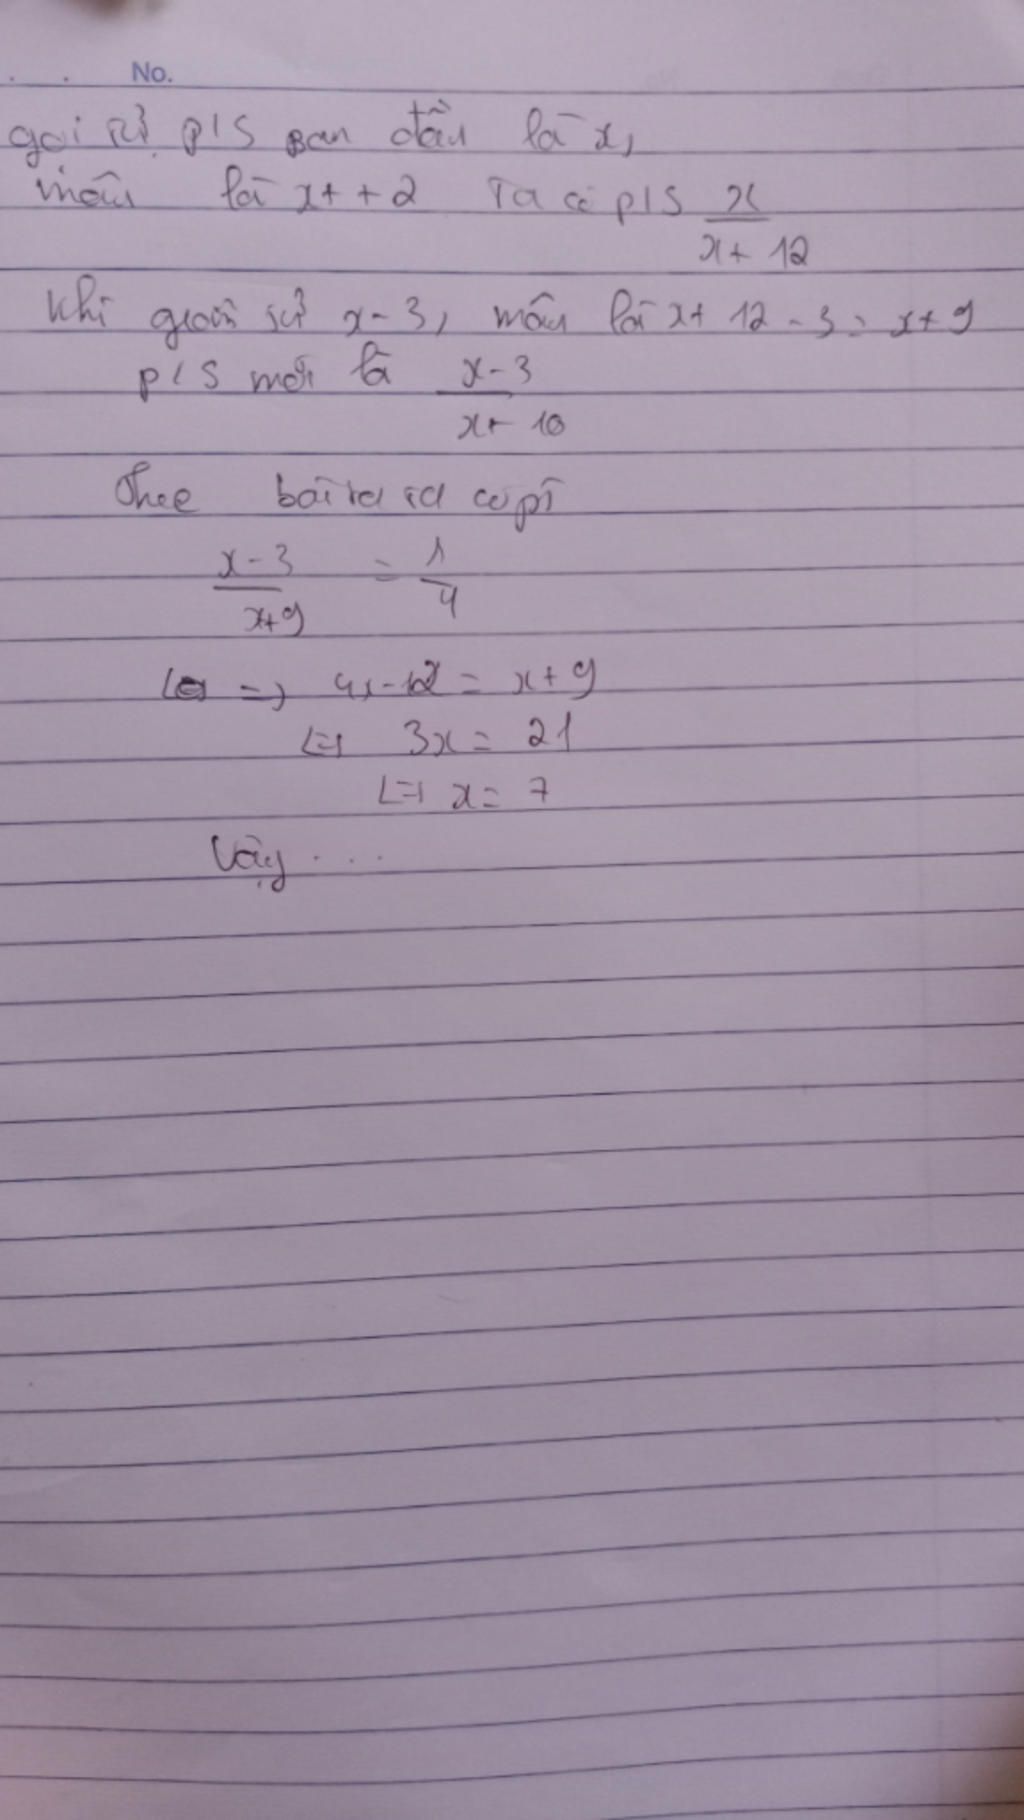 No.
gọi tử p/s ban đầu là x,
mẫu là x + + 2 Ta có p/s x
x + 12
Khi giảm tử x - 3, mẫu là x + 12 - 3 = x + 9
p/s mới là x - 3
x + 10
Theo bài ra ta có pt
x - 3 = 1
x + 9 4
=> 4x - 12 = x + 9
<=> 3x = 21
<=> x = 7
Vậy ...